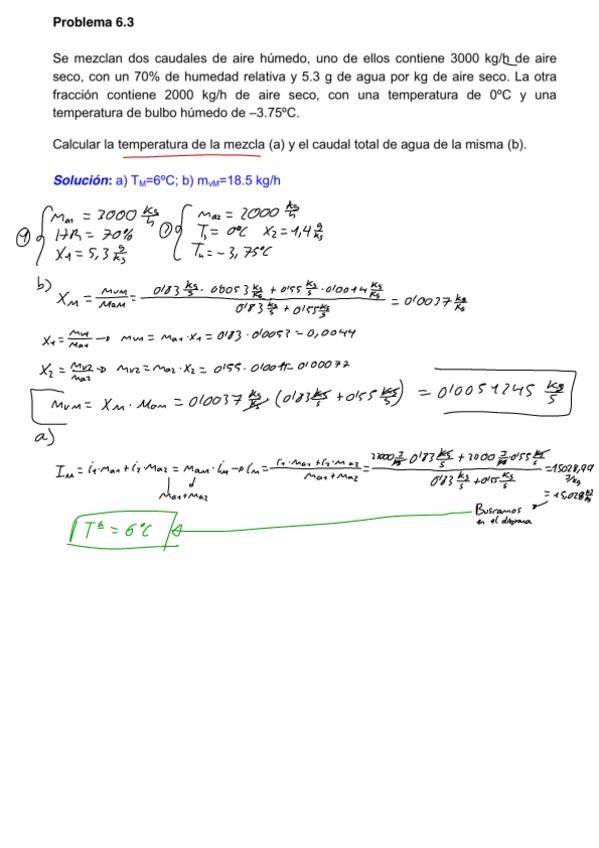 Problema 6.3
Se mezclan dos caudales de aire húmedo, uno de ellos contiene 3000 kg/h de aire
seco, con un 70% de humedad relativa y 5.3 g de agua por kg de aire seco. La otra
fracción contiene 2000 kg/h de aire seco, con una temperatura de 0ºC y una
temperatura de bulbo húmedo de –3.75ºC.
Calcular la temperatura de la mezcla (a) y el caudal total de agua de la misma (b).
Solución: a) TM=6ºC; b) mvM=18.5 kg/h
① { Ma1 = 3000 kg/h
HR = 70%
X1 = 5,3 g/kg
{ Ma2 = 2000 kg/h
Ts = 0ºC X2 = 1,4 g/kg
Th = -3,75ºC
b)
XM = MvM/MaM = (0'83 kg/s · 0'0053 kg/kg + 0'55 kg/s · 0'0014 kg/kg)/(0'83 kg/s + 0'55 kg/s) = 0'0037 kg/kg
X1 = Mv1/Ma1 → Mv1 = Ma1 · X1 = 0'83 · 0'0053 = 0,0044
X2 = Mv2/Ma2 → Mv2 = Ma2 · X2 = 0'55 · 0'0014 = 0'00077
MvM = XM · MaM = 0'0037 kg/kg (0'83 kg/s + 0'55 kg/s) = 0'0051245 kg/s
a)
IM = i1·Ma1 + i2·Ma2 = MaM · iM → iM = (i1·Ma1 + i2·Ma2)/(Ma1+Ma2) = = 15028,99 J/kg
Ma1+Ma2
Buscamos en el diagrama
Tª = 6ºC